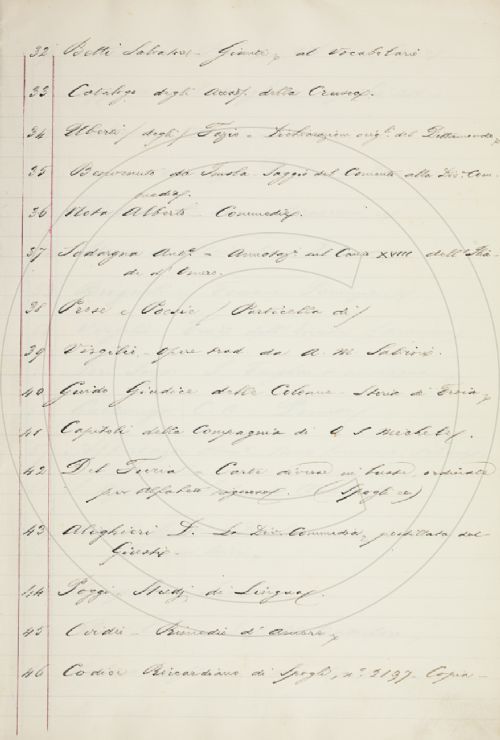 32 Betti Salvatore - Giunte al Vocabolario
33 Catalogo degli Accad. della Crusca.
34 Uberti / degli / Fazio - Dichiarazion orig. del Dittamondo
35 Benvenuto da Imola - Saggio del Comento alla Div. Com-
media.
36 Nota Alberto - Commedie.
37 And. - Annotaz. sul Canto XVIII dell' Ilia-
de d' Omero.
38 Prose e Poesie / Particella di /
39 Virgilio - Opere trad. da A. M.
40 Guido Giudice delle Colonne - Storia di Troia
41 Capitoli della Compagnia di S. Michele.
42 Del Furia - Carte diverse in buste, ordinate
per Alfabeto rigoroso. (Spogli ec)
43 Alighieri D. La Div. Commedia, postillata dal
Giusti.
44 Poggi - Studj di Lingua.
45 Ovidio - Rimedio d' Amore
46 Codice Riccardiano di Spogli, n.º 2197. Copia -